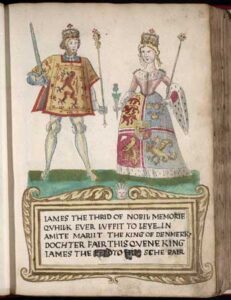 IAMES THE THRID OF NOBIL MEMORIE
QVHILK EVER IVFFIT TO LEVE IN
AMITE MARIIT THE KING OF DENMERK,
DOCHTER FAIR THIS QVENE KING
IAMES THE TO SCHE BAIR